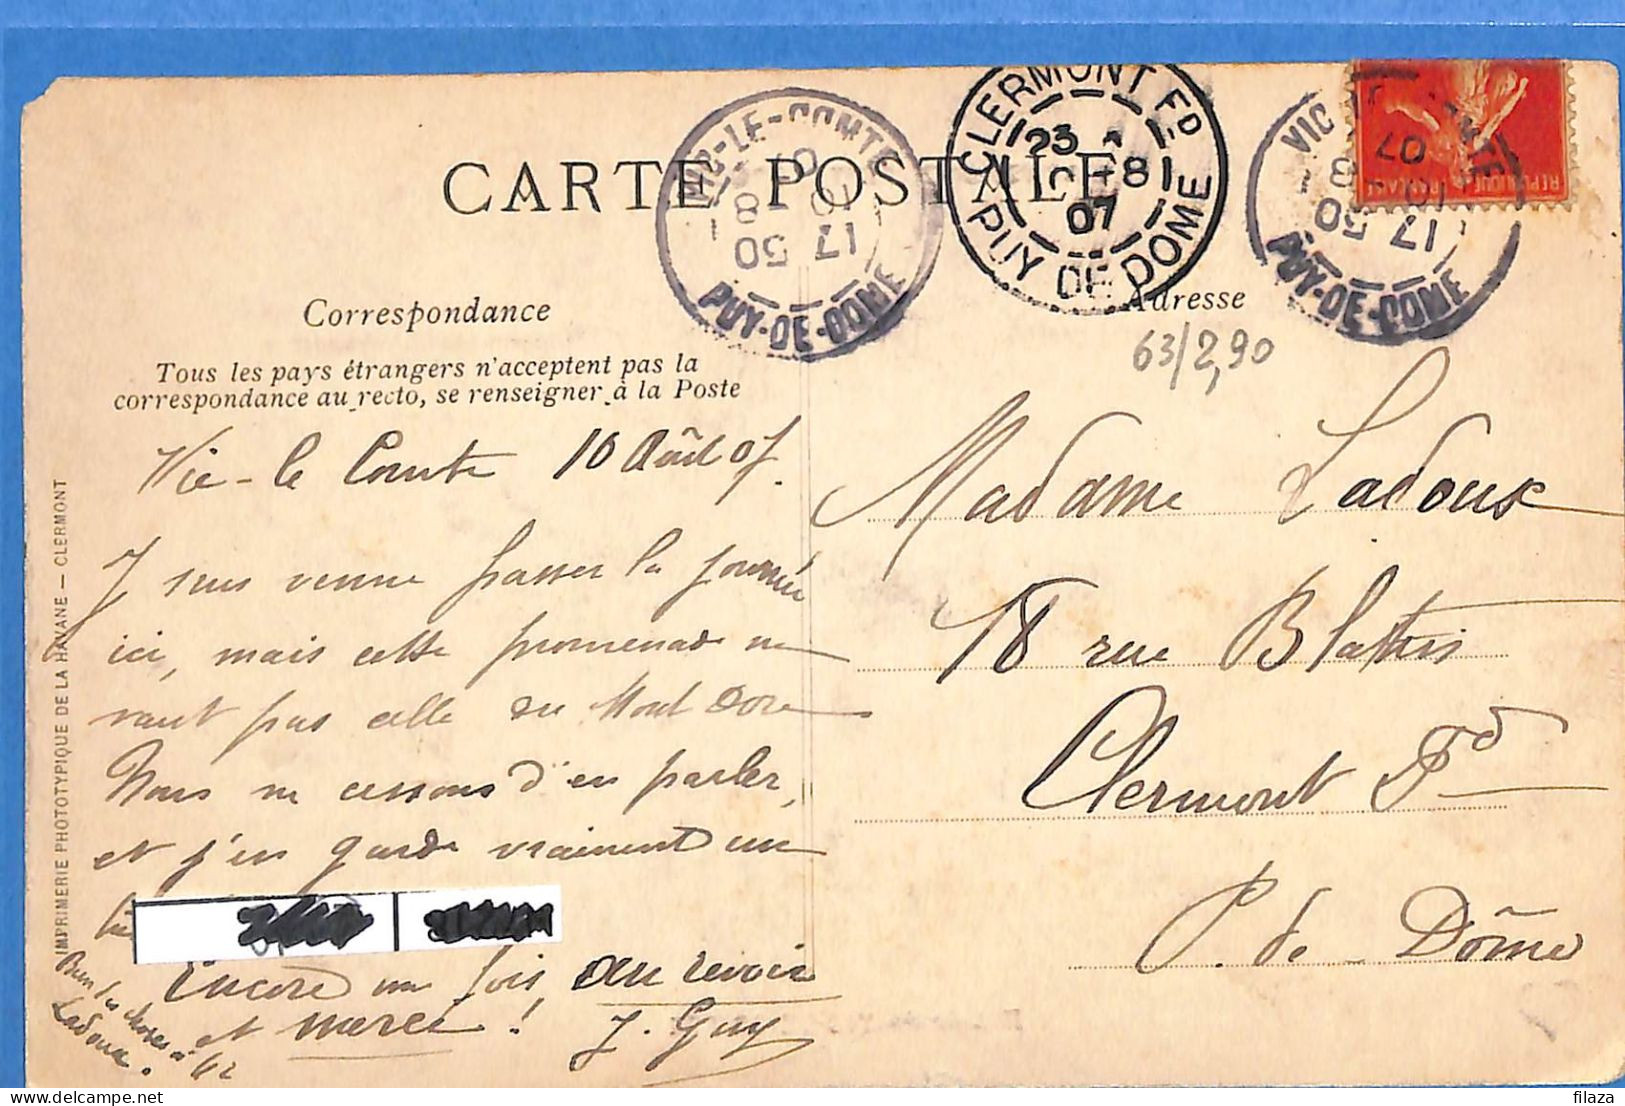 CARTE POSTALE
VIC-LE-COMTE
17 50
10 - 8
07
PUY-DE-DOME
CLERMONT Fd
23
10 - 8
07
PUY DE DOME
VIC-LE-COMTE
17 50
10 - 8
07
PUY-DE-DOME
REPUBLIQUE FRANÇAISE
Correspondance
Tous les pays étrangers n'acceptent pas la
correspondance au recto, se renseigner à la Poste
Vic-le Comte 10 Août 07.
J suis venue passer la journée
ici, mais cette promenade ne
vaut pas celle du Mont Dore
Nous ne cessons d'en parler,
et j'en garde vraiment un
Encore une fois, au revoir
et merci!
J. Guy
Bien des choses à Mr
Ladoux.
IMPRIMERIE PHOTOTYPIQUE DE LA HAVANE — CLERMONT
Adresse
63/2,90
Madame Ladoux
18 rue Blatin
Clermont Fd
P. de Dôme
delcampe.net
filaza